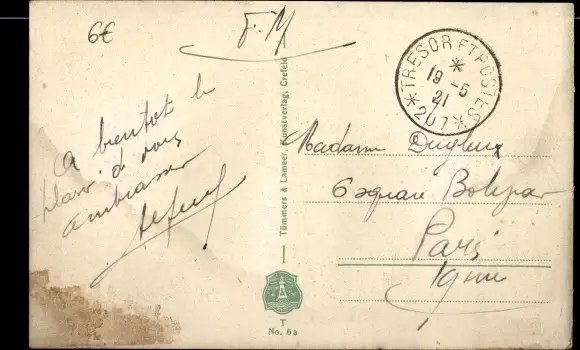 6€
F.M
TRESOR ET POSTES
19-5
21
* 207 *
A bientot le
plaisir de vous
ambrasser
Tümmers & Lameer, Kunstverlag, Crefeld
Madame
6 square Bolivar
Paris
19me
T
No. 6a